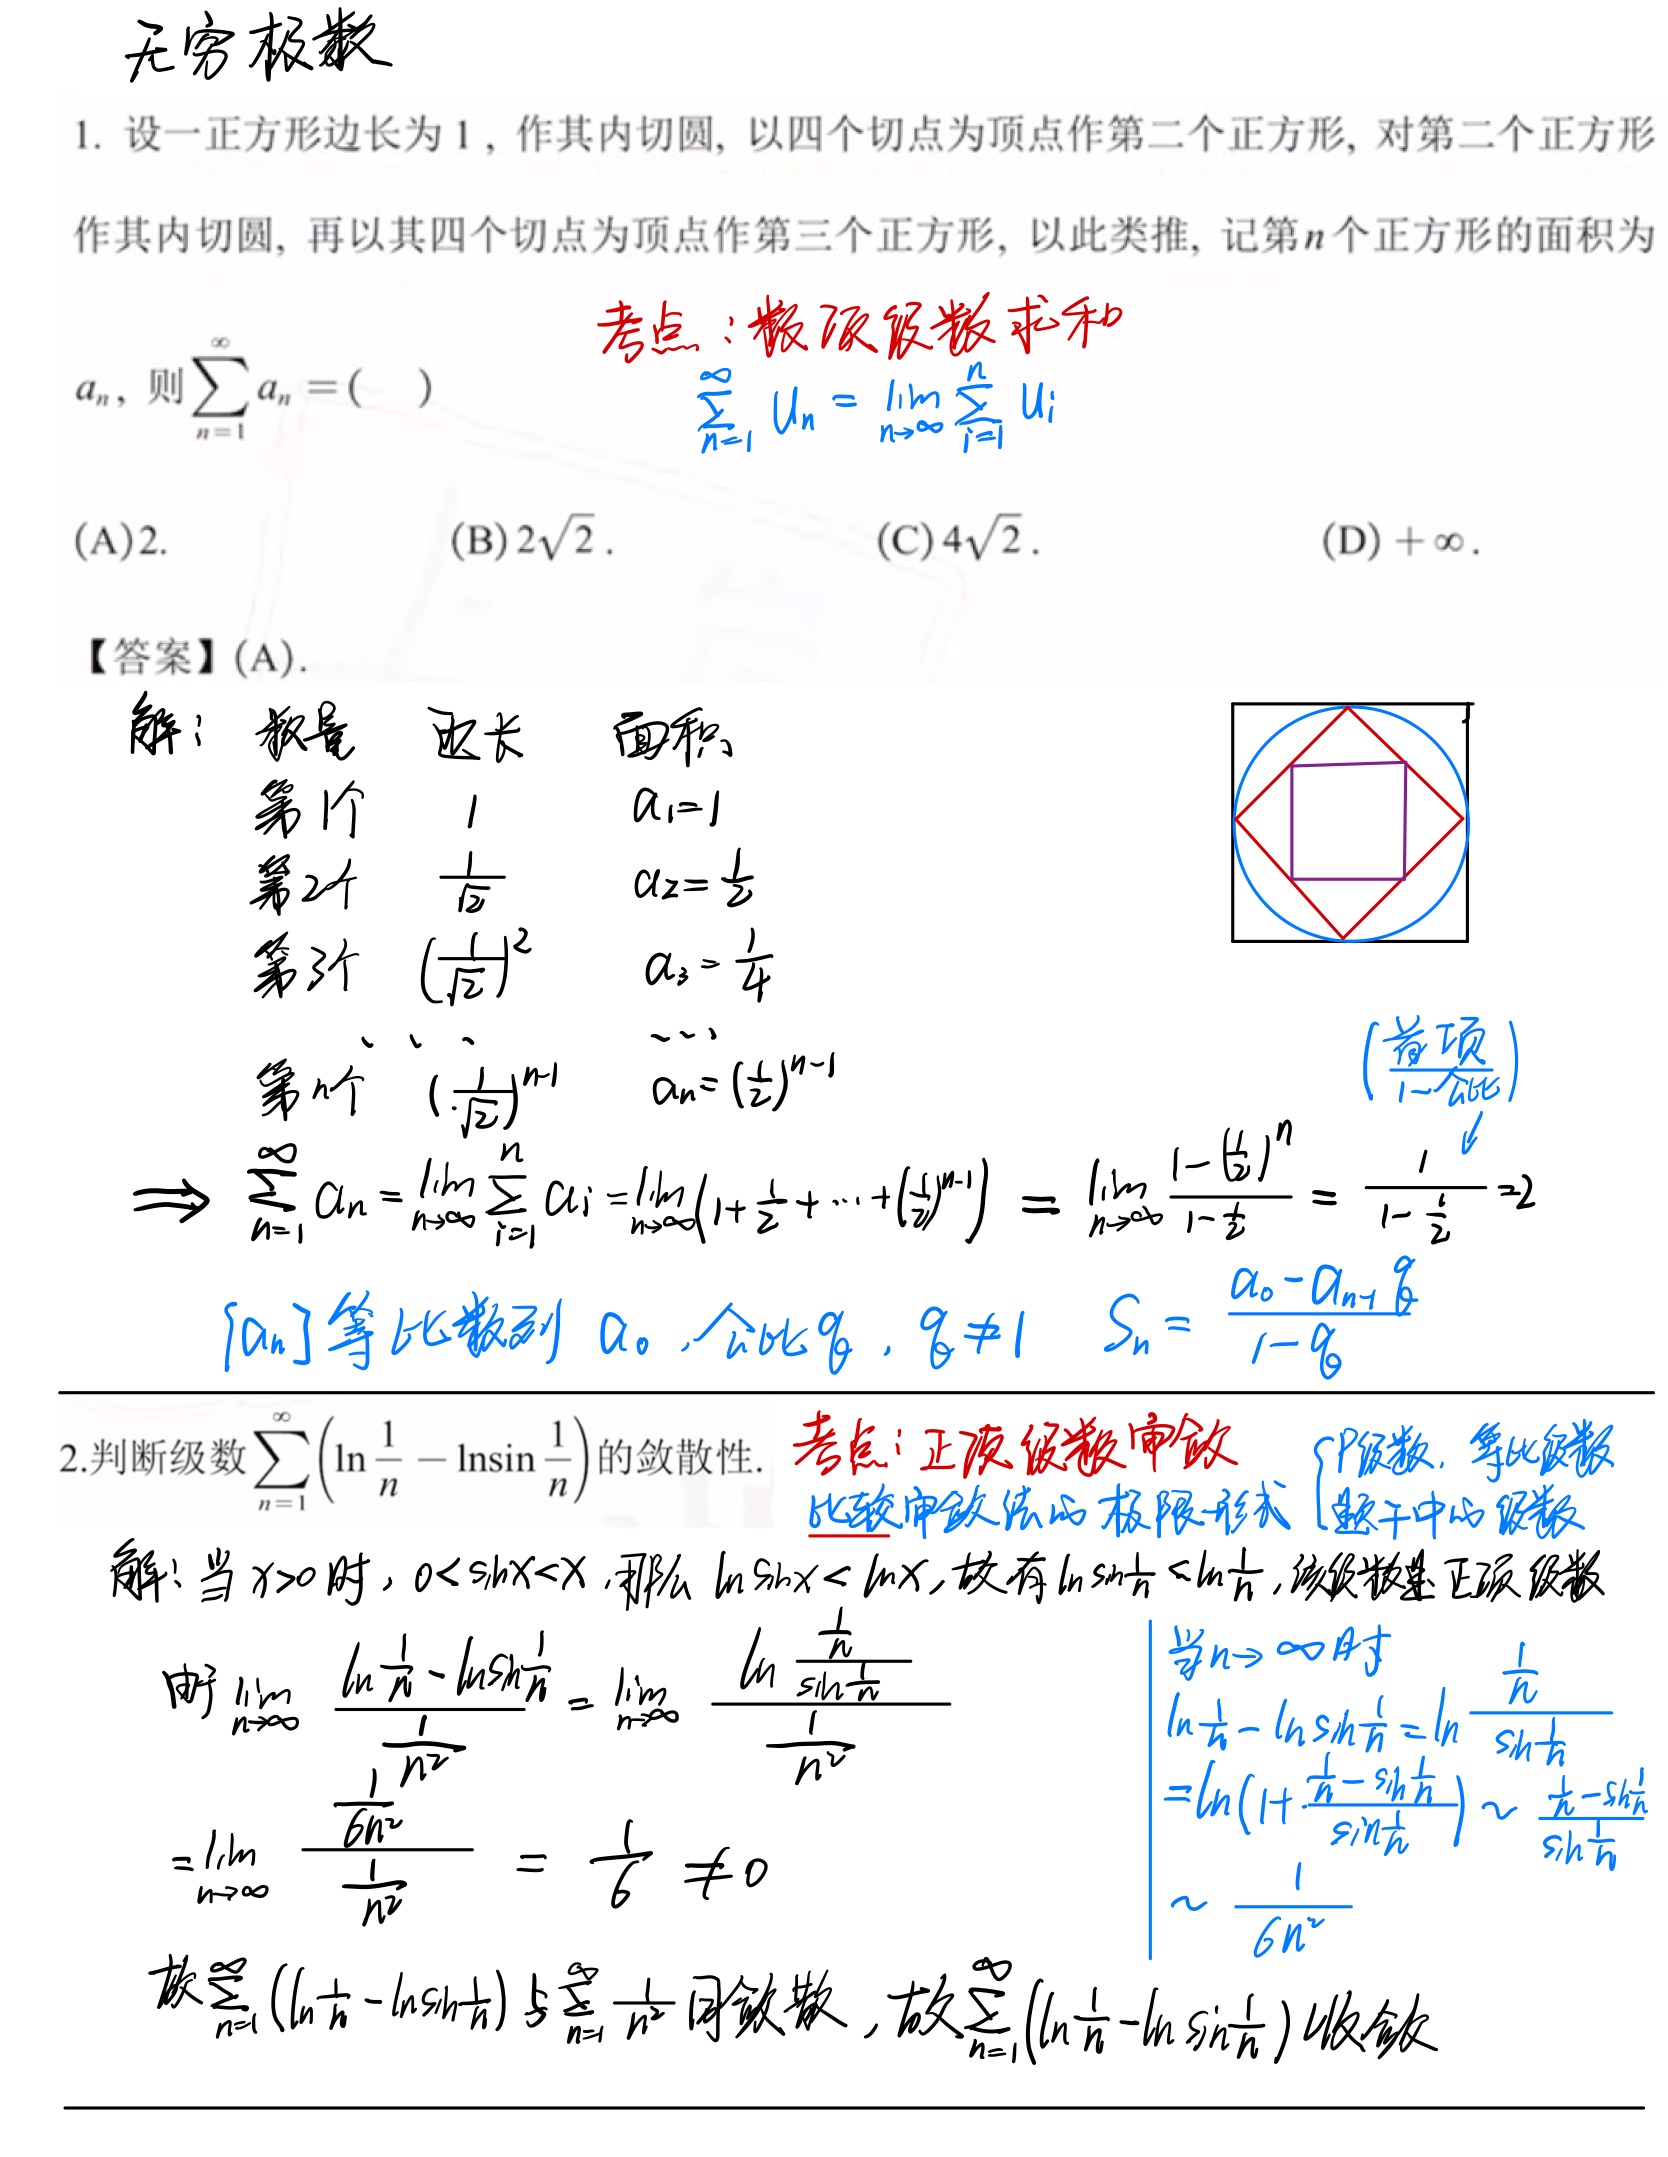 无穷极数
1. 设一正方形边长为 1 , 作其内切圆, 以四个切点为顶点作第二个正方形, 对第二个正方形
作其内切圆, 再以其四个切点为顶点作第三个正方形, 以此类推, 记第 n 个正方形的面积为
考点：数项级数求和
a_n, 则 \sum_{n=1}^{\infty} a_n = (    )
\sum_{n=1}^{\infty} u_n = \lim_{n→∞} \sum_{i=1}^{n} u_i
(A) 2. (B) 2√2 . (C) 4√2 . (D) +∞ .
【答案】(A).
解： 数量 边长 面积
第1个 1 a_1=1
第2个 \frac{1}{√2} a_2=\frac{1}{2}
第3个 (\frac{1}{√2})^2 a_3=\frac{1}{4}
... ...
第n个 (\frac{1}{√2})^{n-1} a_n=(\frac{1}{2})^{n-1}
(\frac{首项}{1-公比})
⇒ \sum_{n=1}^{∞} a_n = \lim_{n→∞} \sum_{i=1}^{n} a_i = \lim_{n→∞} (1+\frac{1}{2}+…+(\frac{1}{2})^{n-1}) = \lim_{n→∞} \frac{1-(\frac{1}{2})^n}{1-\frac{1}{2}} = \frac{1}{1-\frac{1}{2}} =2
{a_n}等比数列 a_0 , 公比q , q≠1 S_n = \frac{a_0-a_{n-1}q}{1-q}
2.判断级数 \sum_{n=1}^{∞} (ln\frac{1}{n} - lnsin\frac{1}{n}) 的敛散性.
考点：正项级数审敛
比较审敛法的极限形式 { P级数, 等比级数
题干中的级数
解：当 x>0 时, 0<sinx<x , 那么 ln sinx < lnx, 故有 ln sin\frac{1}{n} < ln\frac{1}{n}, 该级数是正项级数
由于 \lim_{n→∞} \frac{ln\frac{1}{n}-lnsin\frac{1}{n}}{\frac{1}{n^2}} = \lim_{n→∞} \frac{ln\frac{\frac{1}{n}}{sin\frac{1}{n}}}{\frac{1}{n^2}}
= \lim_{n→∞} \frac{\frac{1}{6n^2}}{\frac{1}{n^2}} = \frac{1}{6} ≠ 0
当n→∞时
ln\frac{1}{n} - ln sin\frac{1}{n} = ln\frac{\frac{1}{n}}{sin\frac{1}{n}}
=ln(1+\frac{\frac{1}{n}-sin\frac{1}{n}}{sin\frac{1}{n}}) ~ \frac{\frac{1}{n}-sin\frac{1}{n}}{sin\frac{1}{n}}
~ \frac{1}{6n^2}
故 \sum_{n=1}^{∞} (ln\frac{1}{n}-lnsin\frac{1}{n}) 与 \sum_{n=1}^{∞} \frac{1}{n^2} 同敛散 , 故 \sum_{n=1}^{∞} (ln\frac{1}{n}-ln sin\frac{1}{n}) 收敛